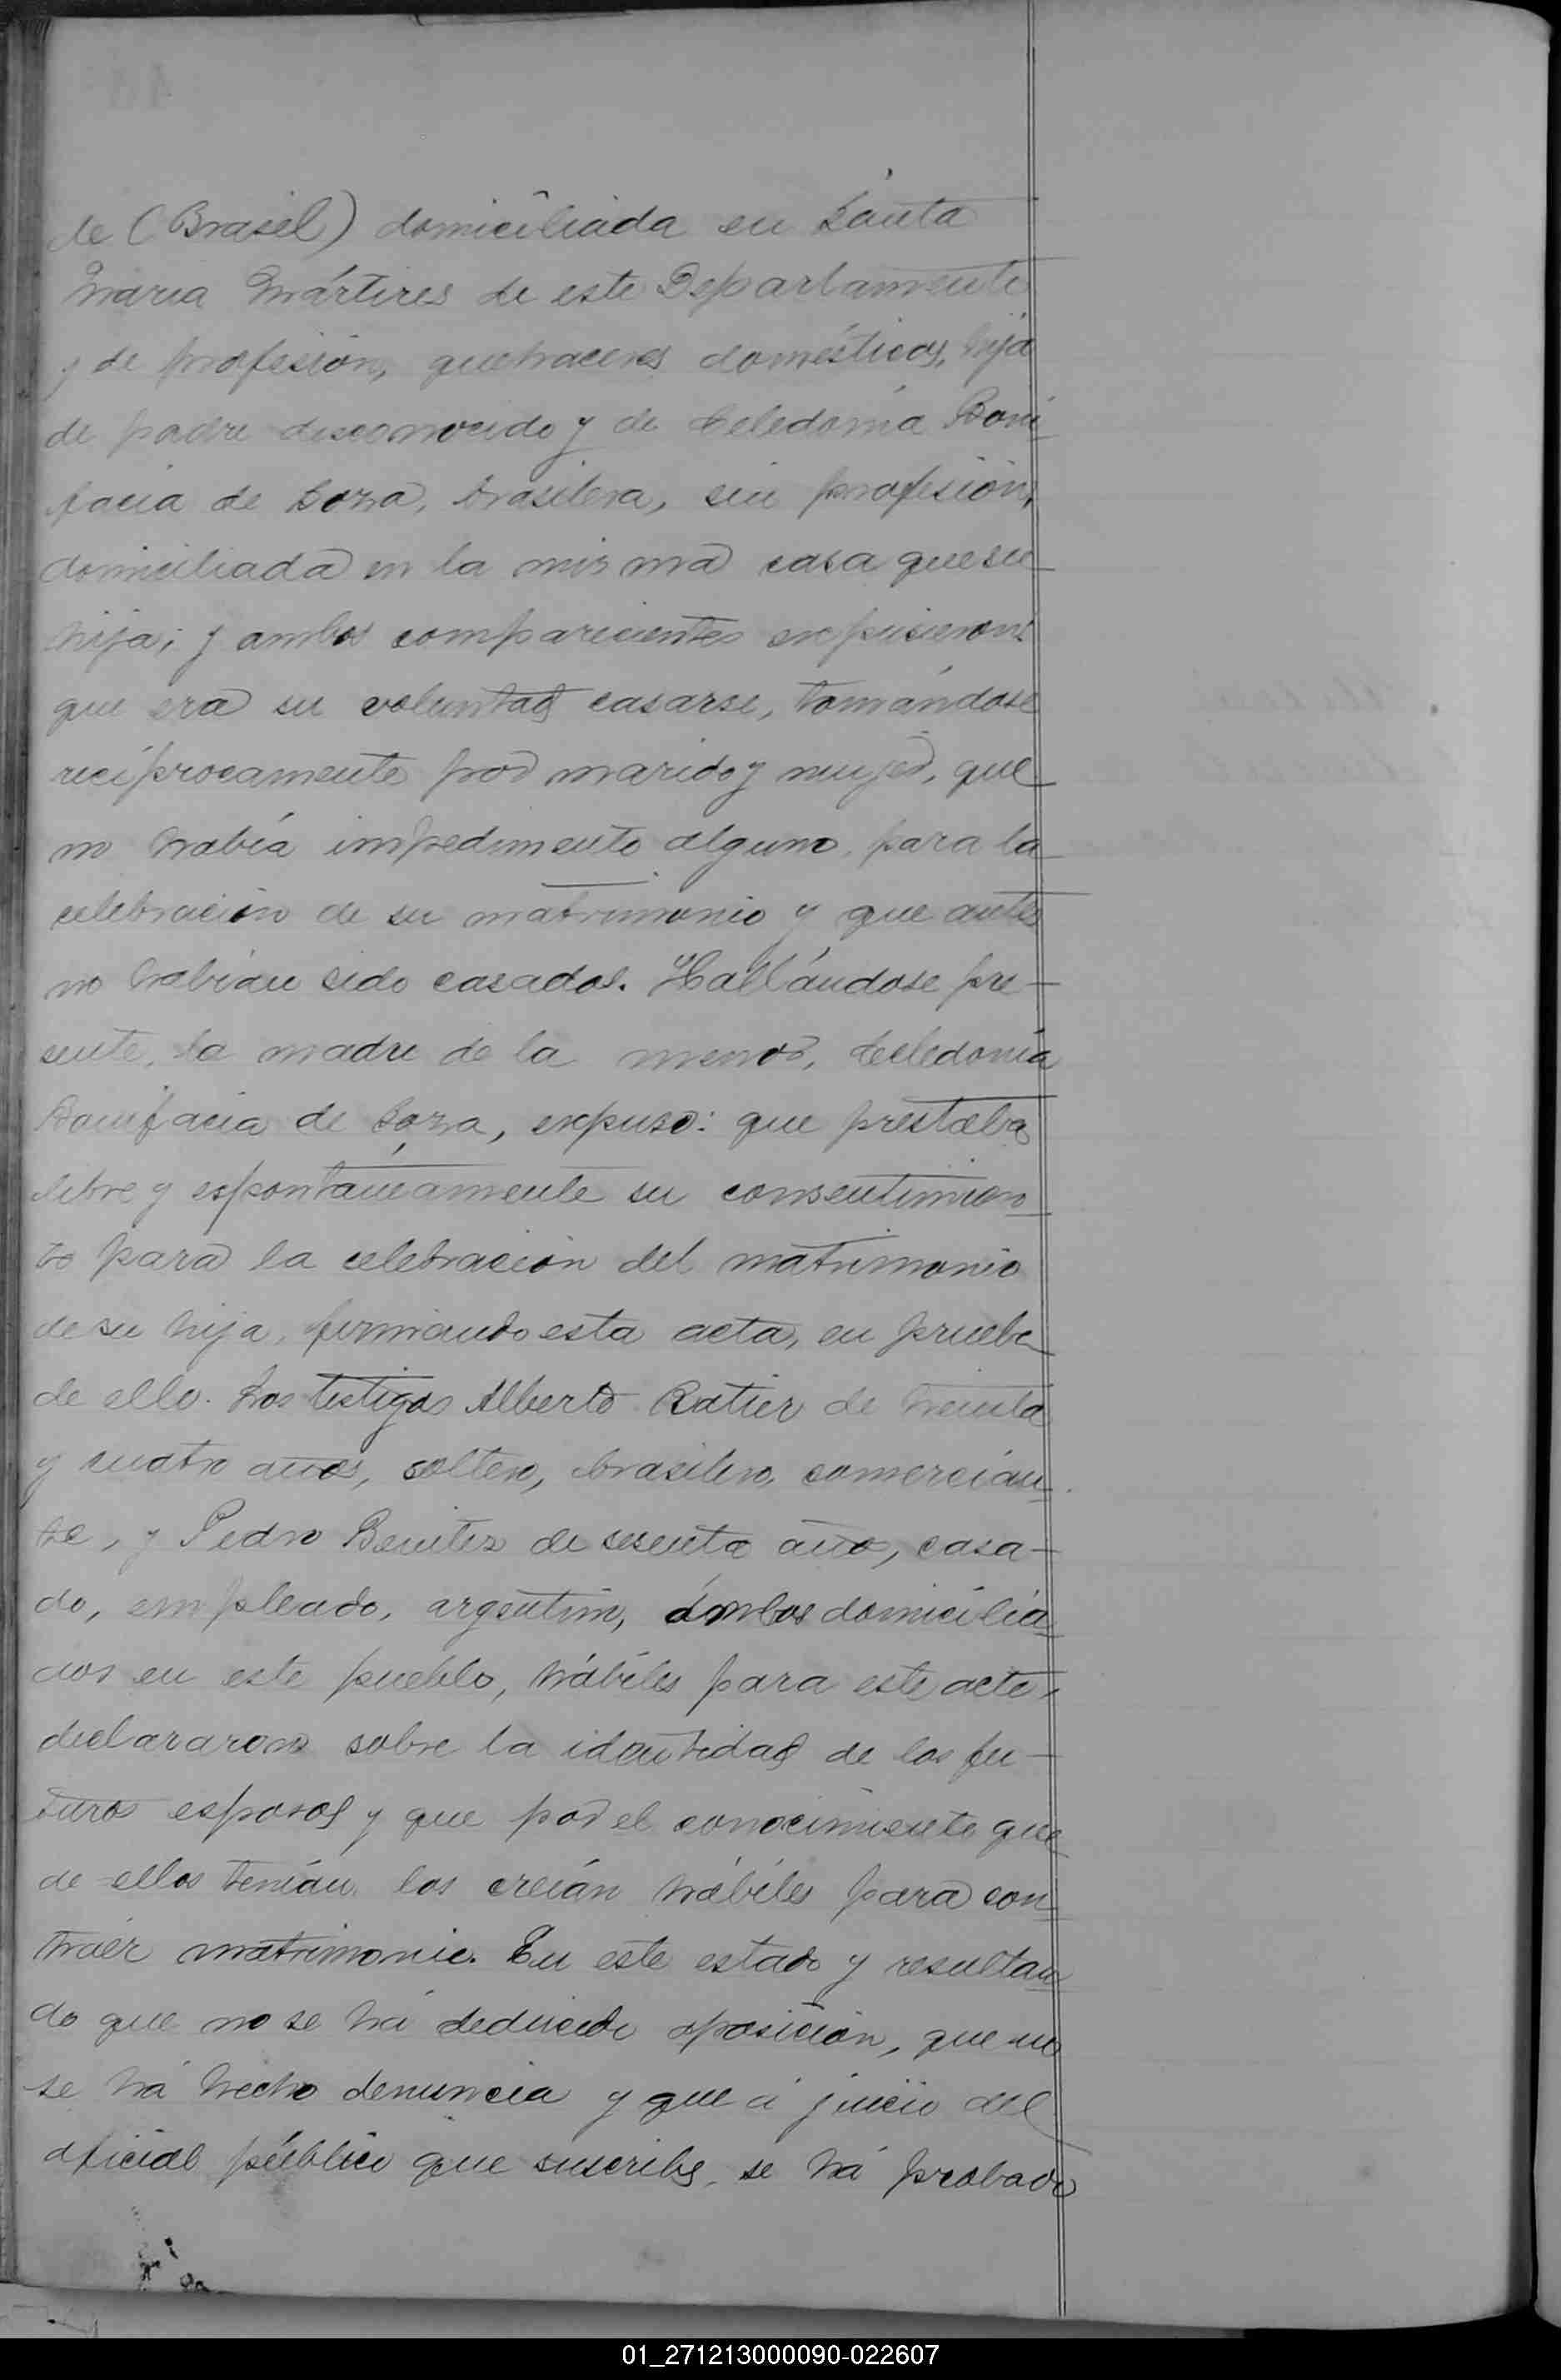 de (Brasil) domiciliada en Santa
Maria Mártires de este Departamento
y de profesión, quehaceres domésticos, hija
de padre desconocido y de Celedonia Boni-
facia de Soza, brasilera, sin profesión,
domiciliada en la misma casa que su
hija; y ambos comparecientes expusieron:
que era su voluntad casarse, tomándose
recíprocamente por marido y mujer, que
no había impedimento alguno para la
celebración de su matrimonio y que antes
no habían sido casados. Hallándose pre-
sente, la madre de la menor, Celedonia
Bonifacia de Soza, expuso: que prestaba
libre y espontáneamente su consentimien-
to para la celebración del matrimonio
de su hija, firmando esta acta, en prueba
de ello. Los testigos Alberto Ratier de treinta
y cuatro años, soltero, brasilero, comercian-
te, y Pedro Benitez de sesenta años, casa-
do, empleado, argentino, ámbos domicilia-
dos en este pueblo, hábiles para este acto,
declararon sobre la identidad de los fu-
turos esposos y que por el conocimiento que
de ellos tenían los creían hábiles para con-
traer matrimonio. En este estado y resultan-
do que no se há deducido oposición, que no
se há hecho denuncia y que á juicio del
oficial público que suscribe, se há probado
01_271213000090-022607